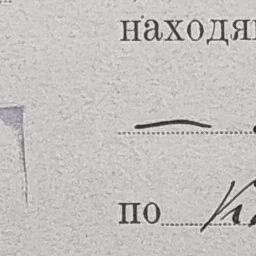 находя
—
по